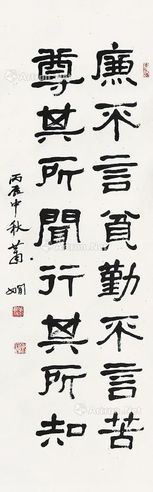 廉不言貧勤不言苦
尊其所聞行其所知
丙辰中秋蕭嫻